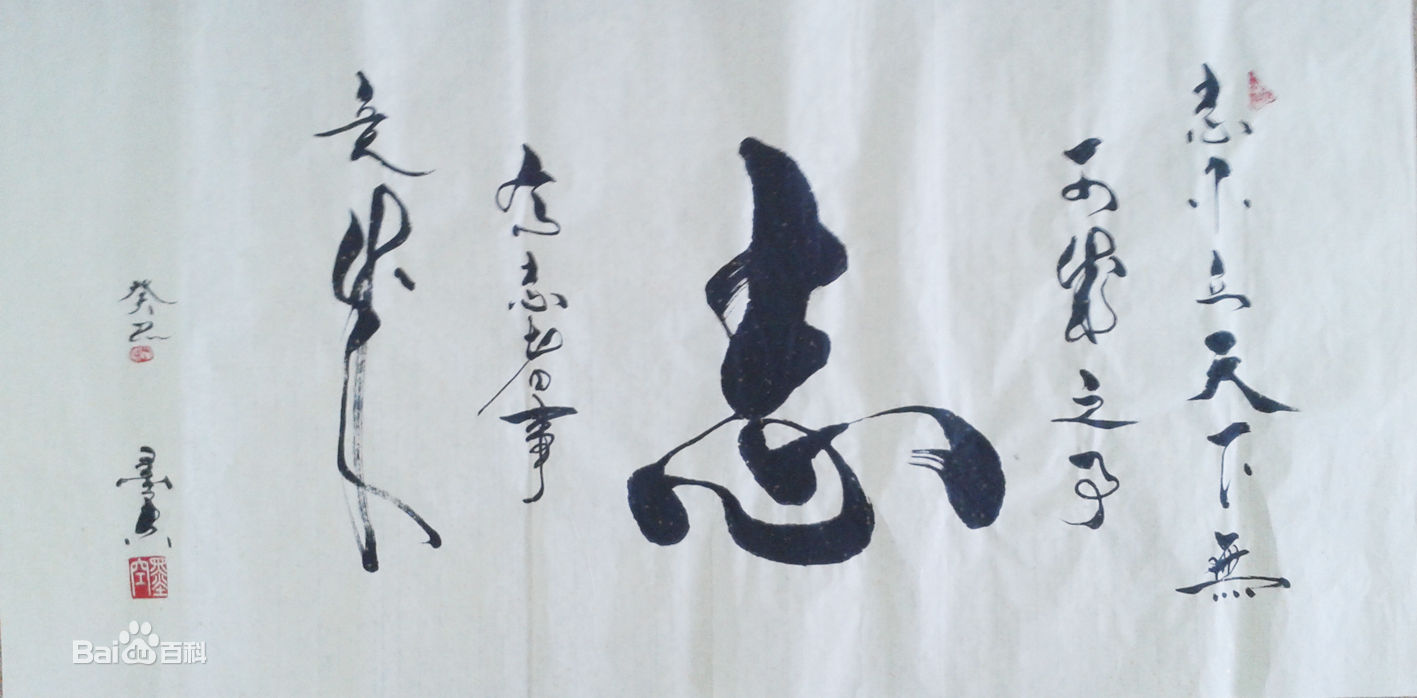 志不立天下無
可成之事
志
有志者事
竟成
癸巳
墨空
Bai du 百科